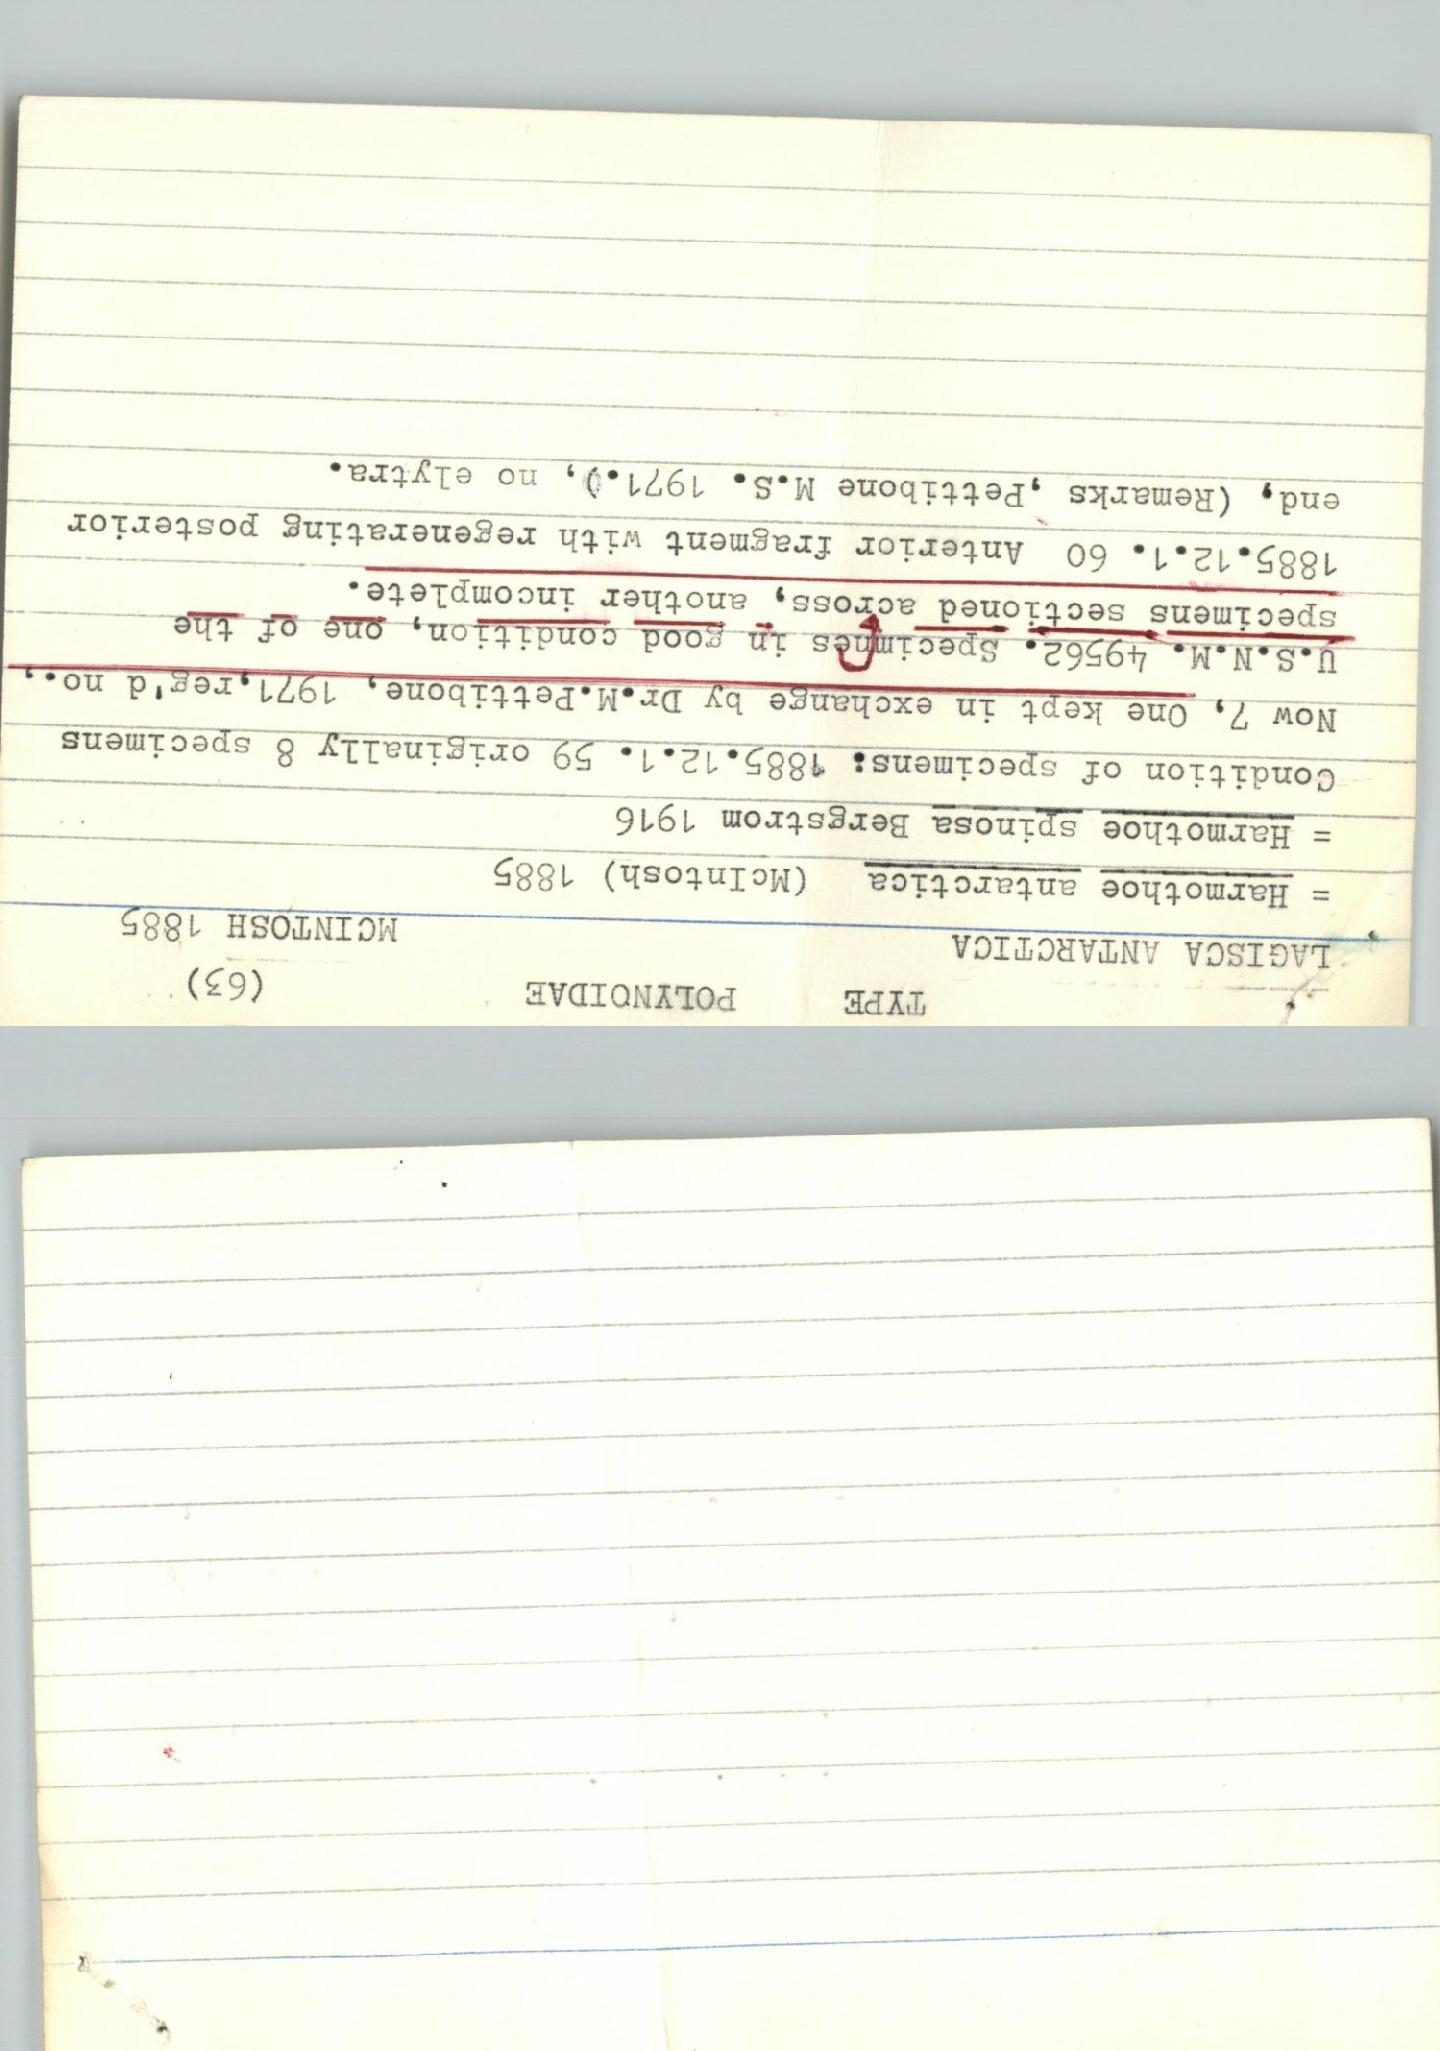 TYPE POLYNOIDAE (63)
LAGISCA ANTARCTICA MCINTOSH 1885
= Harmothoe antarctica (McIntosh) 1885
= Harmothoe spinosa Bergstrom 1916
Condition of specimens: 1885.12.1. 59 originally 8 specimens
Now 7, One kept in exchange by Dr.M.Pettibone, 1971,reg'd no.,
U.S.N.M. 49562. Specimnes in good condition, one of the
specimens sectioned across, another incomplete.
1885.12.1. 60 Anterior fragment with regenerating posterior
end, (Remarks ,Pettibone M.S. 1971.), no elytra.